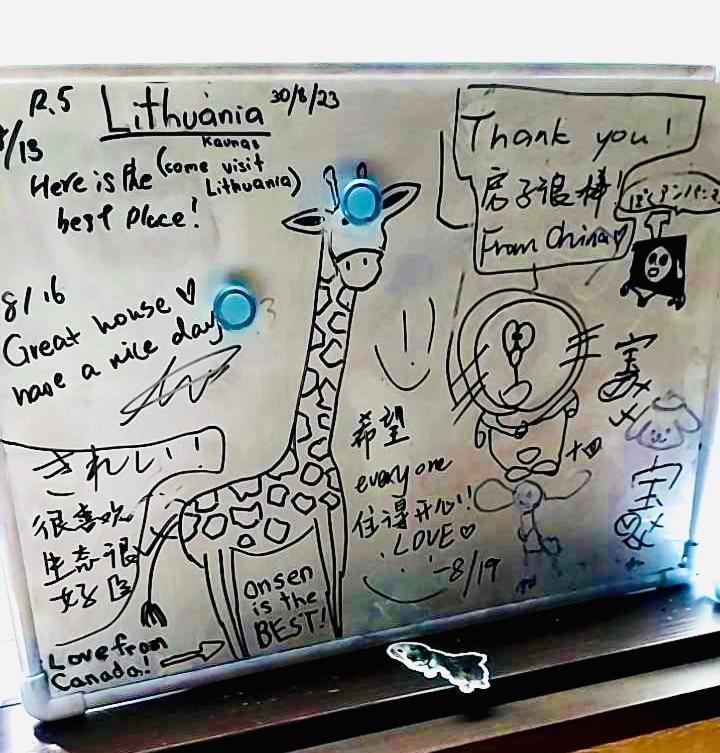 R.5
Lithuania 30/8/23
Kaunas
Here is the (come visit
Lithuania)
best place!
/13
8/16
Great house ♡
have a nice day
きれい!!
很喜欢
生态很
好
Love from
Canada!
onsen
is the
BEST!
希望
everyone
住得开心!!
LOVE ♡
-8/19
Thank you!
房子很棒!
From China ♡